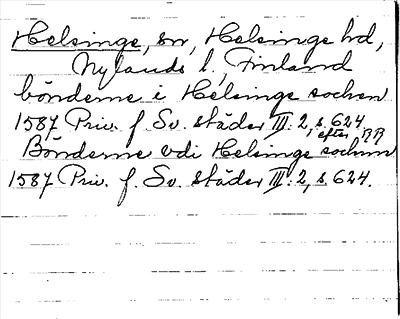 Helsinge, sn, Helsinge hd,
Nylands l, Finland
bönderne i Helsinge socken
1587 Priv. f. Sv. städer III: 2, s. 624.
efter
Bönderne vdi Helsinge sochnn
1587 Priv. f. Sv. städer III: 2, s. 624.